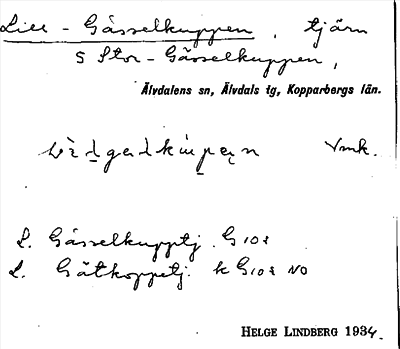 Lill - Gåsselkuppen, tjärn
S Stor - Gåsselkuppen,
Älvdalens sn, Älvdals tg, Kopparbergs län.
Vmk.
L. Gåsselkupptj. G 108
L. Gåtkoppetj. k G 108 NO
HELGE LINDBERG 1934.